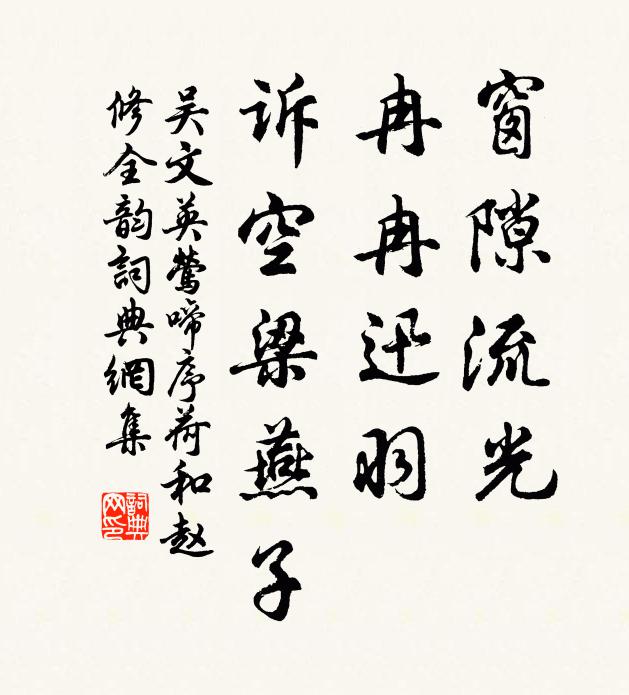 窗隙流光
冉冉迅羽
訴空梁燕子
吴文英莺啼序荷和赵
修全韵詞典網集
詞典网印